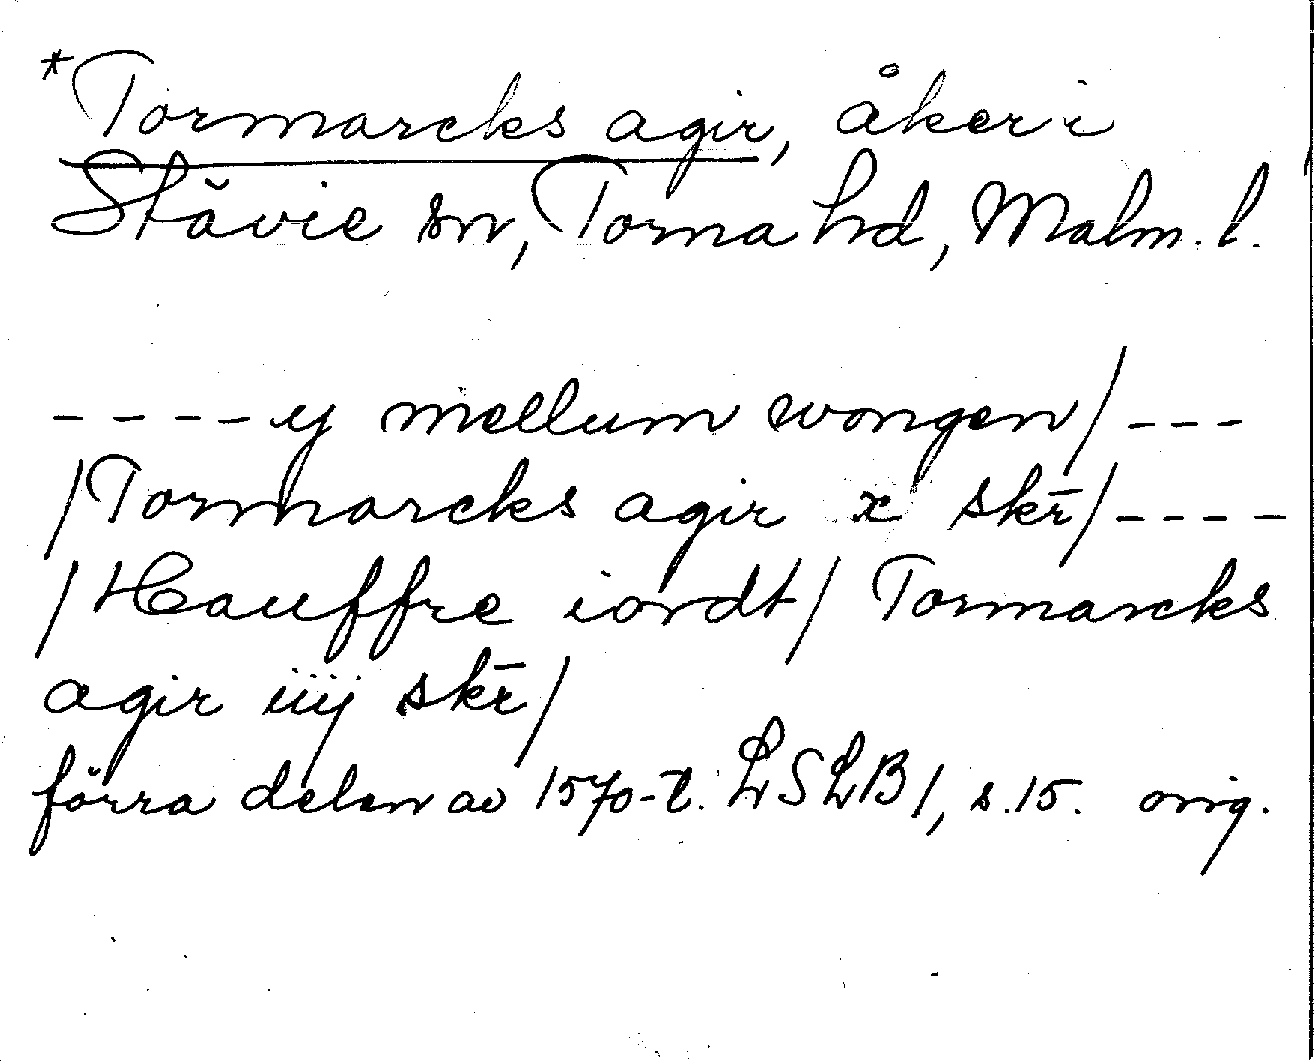 *Tormarcks agir, åker i
Stävie sn, Torna hd, Malm. l.
- - - - ij mellum wongen/ - - -
/Tormarcks agir x skr̄/ - - - -
/Hauffre iordt/ Tormarcks
agir iiij skr̄/
förra delen av 1570-t. LSLB 1, s. 15. orig.